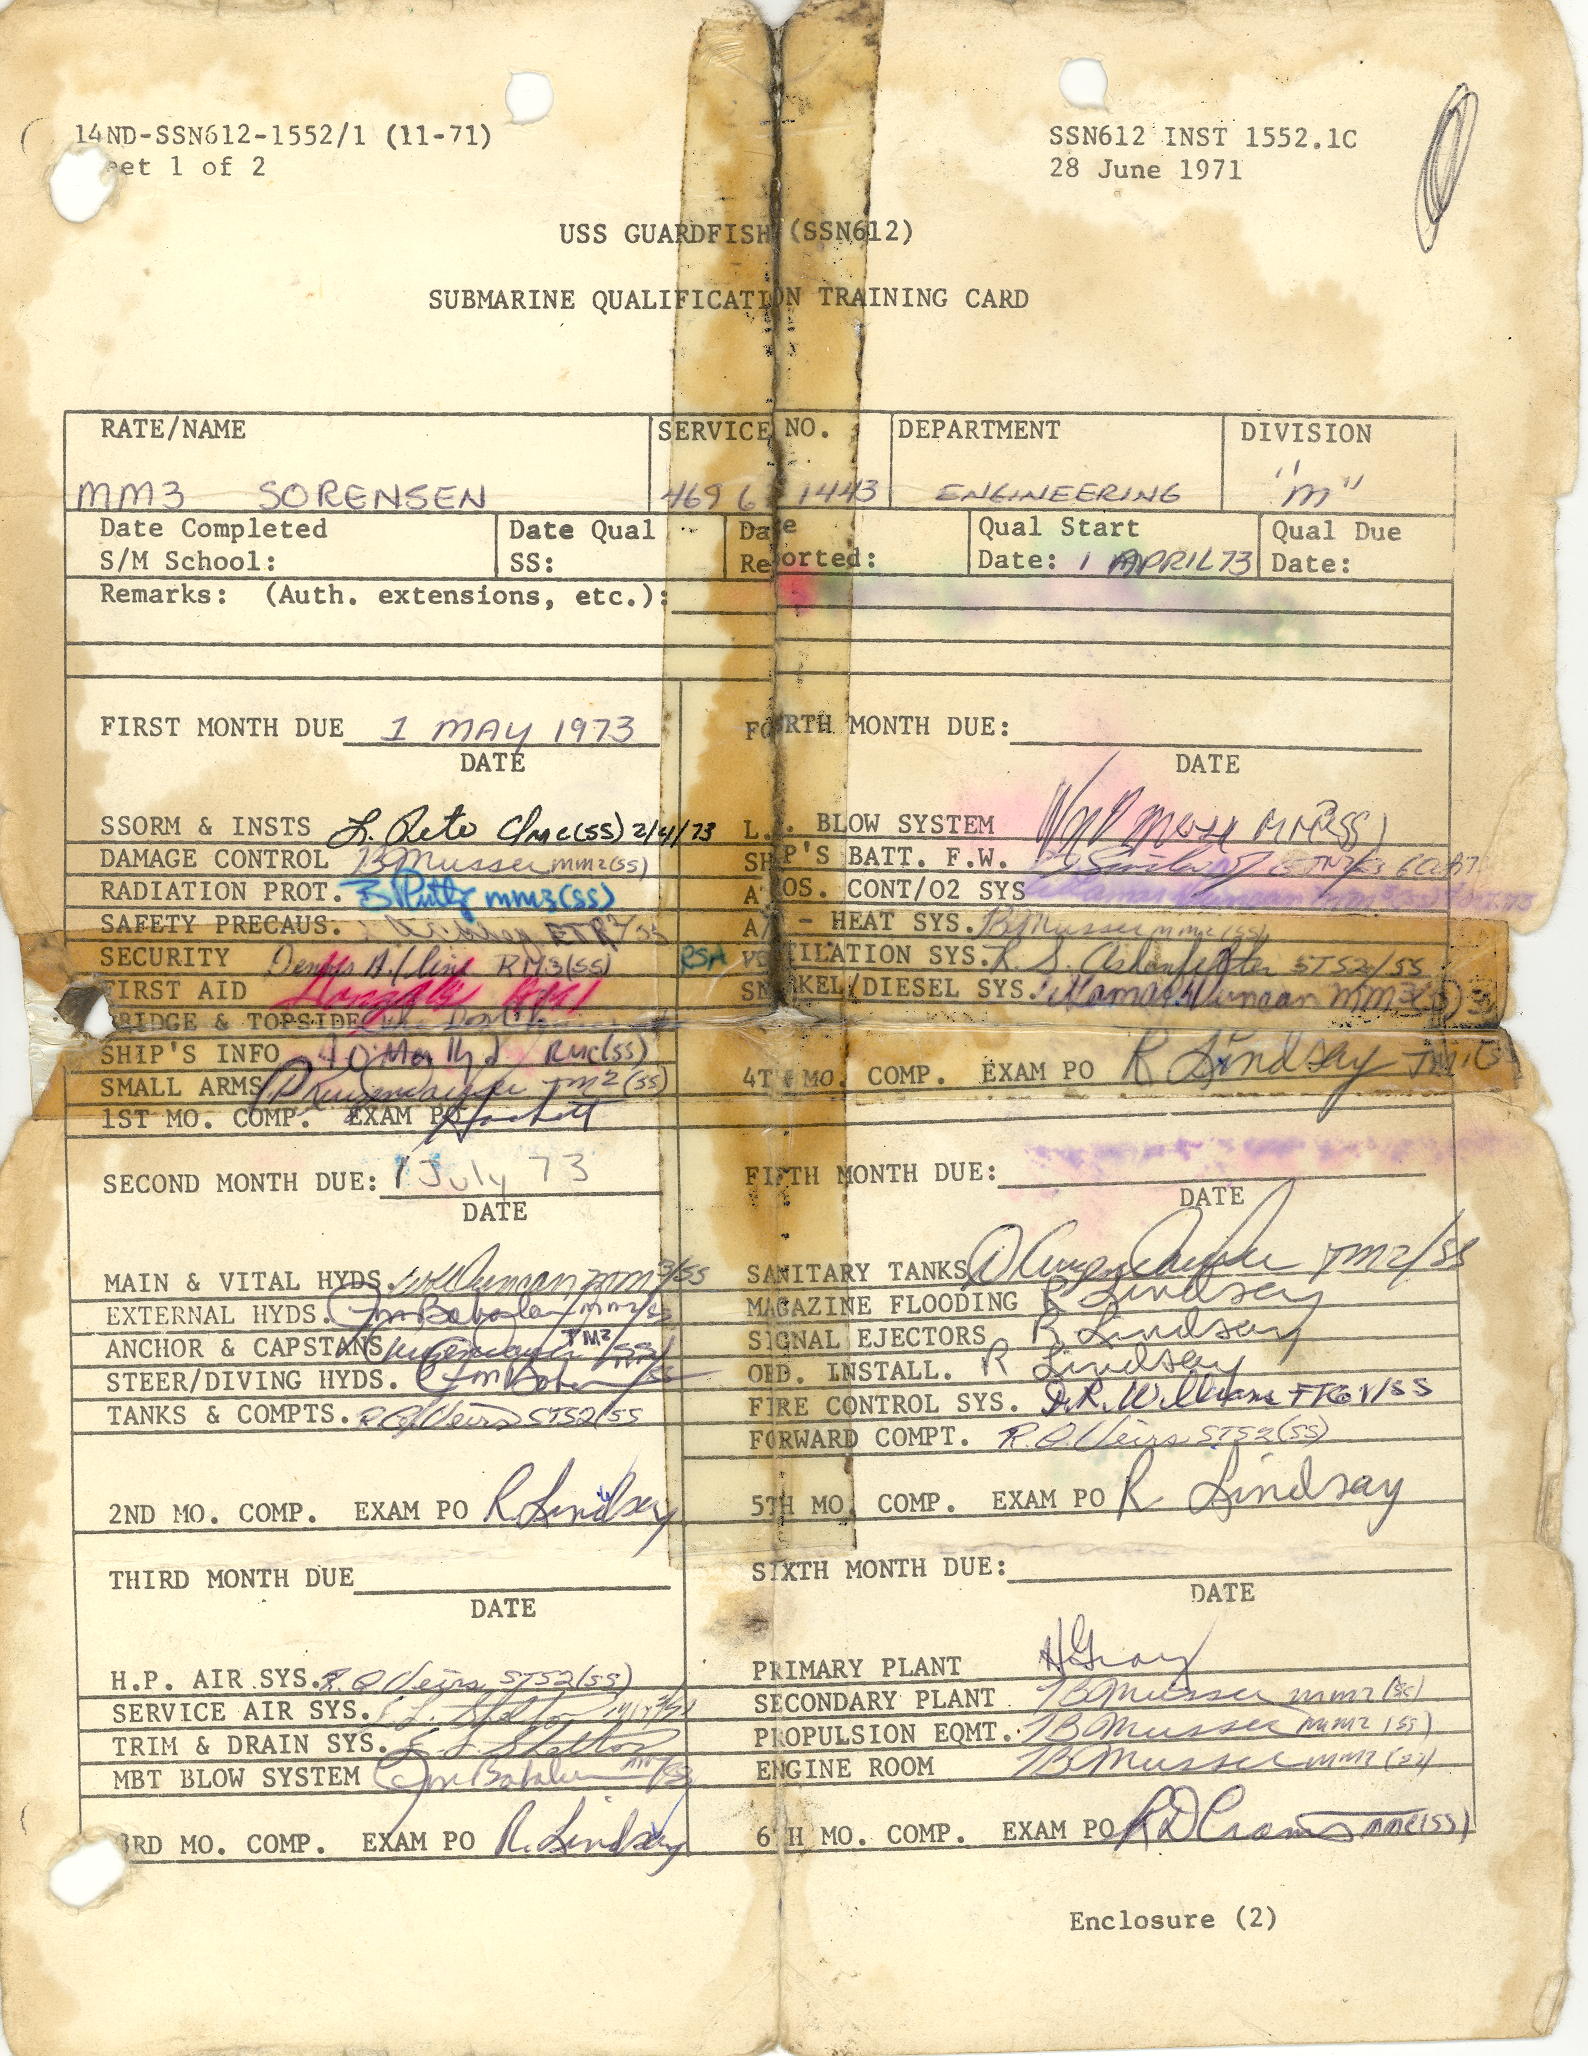 14ND-SSN612-1552/1 (11-71)
SSN612 INST 1552.1C
eet 1 of 2
28 June 1971
USS GUARDFISH (SSN612)
SUBMARINE QUALIFICATION TRAINING CARD
RATE/NAME
SERVICE NO.
DEPARTMENT
DIVISION
MM3 SORENSEN
469 6 1443
ENGINEERING
"M"
Date Completed
S/M School:
Date Qual
SS:
Date
Reported:
Qual Start
Date: 1 APRIL 73
Qual Due
Date:
Remarks: (Auth. extensions, etc.):
FIRST MONTH DUE 1 MAY 1973
DATE
SSORM & INSTS L. Reto CMC(SS) 2/4/73
DAMAGE CONTROL B Musser MM2(SS)
RADIATION PROT. MM3(SS)
SAFETY PRECAUS. ETR2 SS
SECURITY Dennis A. Cline RM3(SS)
FIRST AID
RIDGE & TOPSIDE
SHIP'S INFO RMC(SS)
SMALL ARMS TM2(SS)
1ST MO. COMP. EXAM PO
FOURTH MONTH DUE:
DATE
L. . BLOW SYSTEM MM2(SS)
SHIP'S BATT. F.W.
ATMOS. CONT/O2 SYS Lamar Duncan MM3(SS)
A/C - HEAT SYS. B Musser MM2(SS)
RSA VENTILATION SYS. R. S. STS2/SS
SNORKEL/DIESEL SYS. Lamar Duncan MM3(SS)
4TH MO. COMP. EXAM PO R Lindsay TM1(SS
SECOND MONTH DUE: 1 July 73
DATE
MAIN & VITAL HYDS. MM3/SS
EXTERNAL HYDS. MM2/SS
ANCHOR & CAPSTANS TM2/SS
STEER/DIVING HYDS. /SS
TANKS & COMPTS. R.O. Veirs STS2/SS
2ND MO. COMP. EXAM PO R. Lindsay
FIFTH MONTH DUE:
DATE
SANITARY TANKS TM2/SS
MAGAZINE FLOODING R Lindsay
SIGNAL EJECTORS R Lindsay
ORD. INSTALL. R Lindsay
FIRE CONTROL SYS. D.R. Williams FTG1/SS
FORWARD COMPT. R.O. Veirs STS2(SS)
5TH MO. COMP. EXAM PO R Lindsay
THIRD MONTH DUE
DATE
H.P. AIR SYS. R.O. Veirs STS2(SS)
SERVICE AIR SYS. E.L. Shelton
TRIM & DRAIN SYS. E L Shelton
MBT BLOW SYSTEM
3RD MO. COMP. EXAM PO R. Lindsay
SIXTH MONTH DUE:
DATE
PRIMARY PLANT H Gray
SECONDARY PLANT B Musser MM2(SS)
PROPULSION EQMT. B Musser MM2(SS)
ENGINE ROOM B Musser MM2(SS)
6TH MO. COMP. EXAM PO MMC(SS)
Enclosure (2)